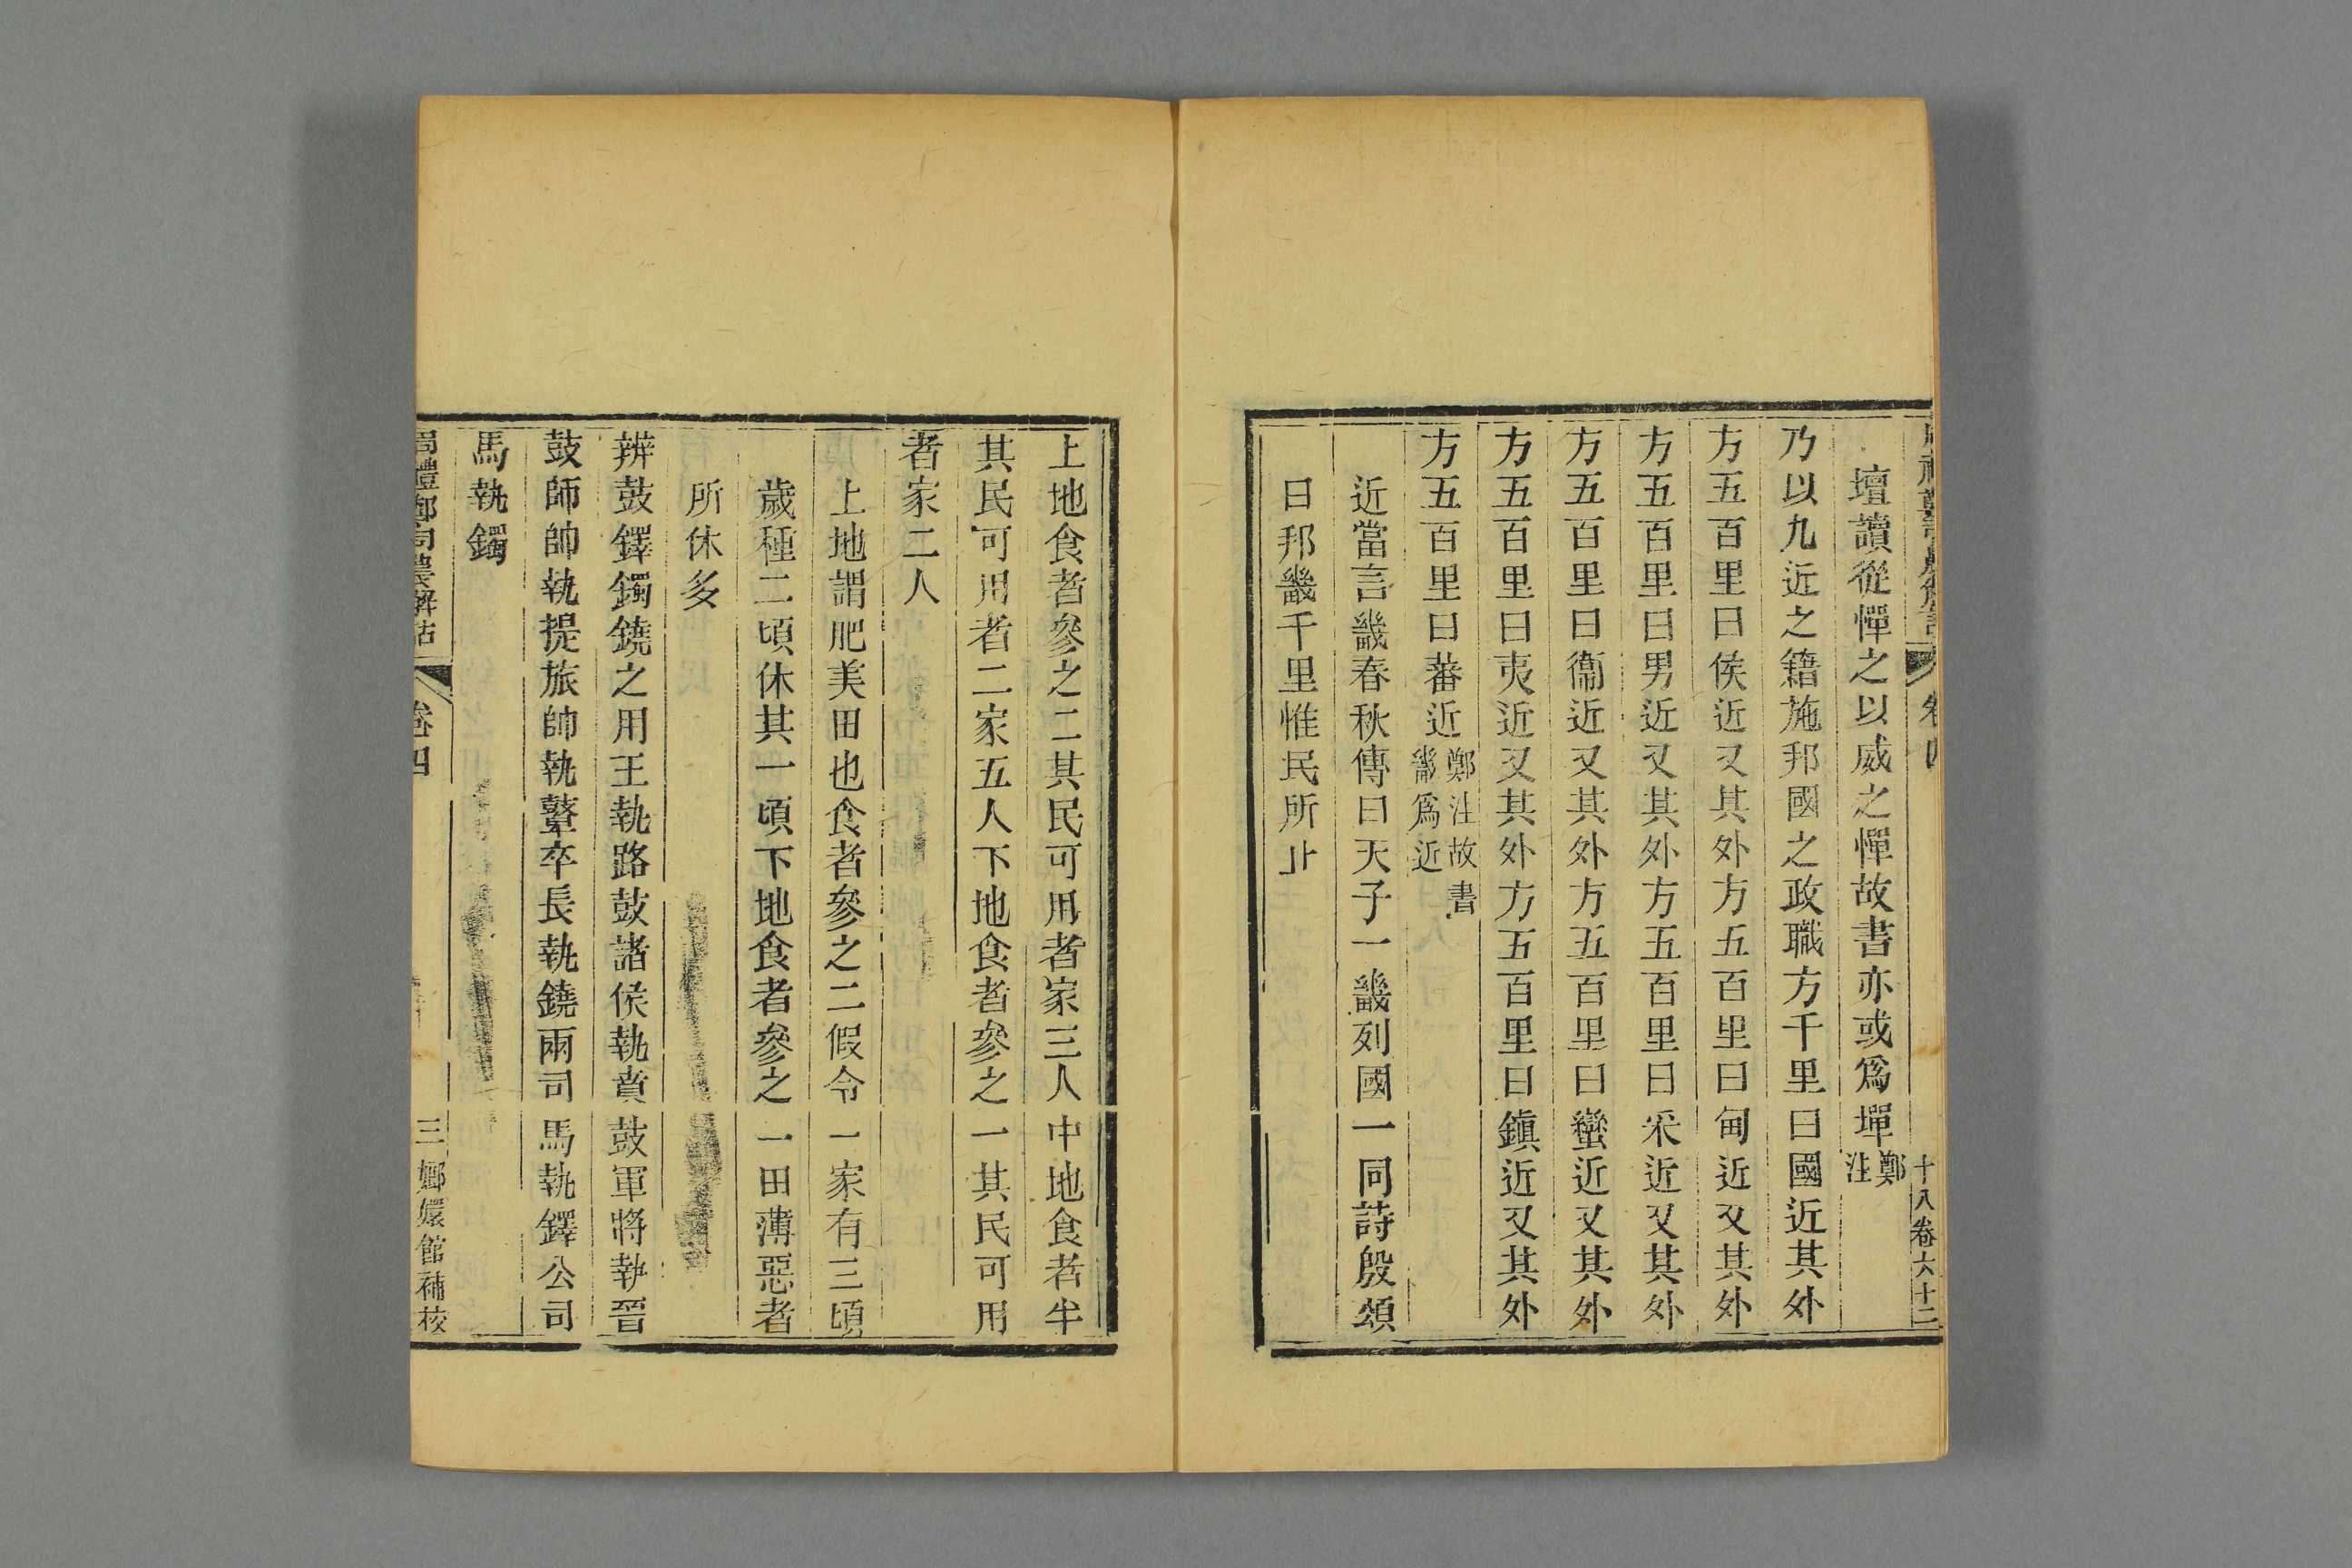 壇讀從憚之以威之憚故書亦或爲墠鄭注
乃以九近之籍施邦國之政職方千里曰國近其外
方五百里曰侯近又其外方五百里曰甸近又其外
方五百里曰男近又其外方五百里曰采近又其外
方五百里曰衞近又其外方五百里曰蠻近又其外
方五百里曰夷近又其外方五百里曰鎭近又其外
方五百里曰蕃近鄭注故書畿爲近
近當言畿春秋傳曰天子一畿列國一同詩殷頌
曰邦畿千里惟民所止
十八卷六十二
上地食者參之二其民可用者家三人中地食者半
其民可用者二家五人下地食者參之一其民可用
者家二人
上地謂肥美田也食者參之二假令一家有三頃
歲種二頃休其一頃下地食者參之一田薄惡者
所休多
辨鼓鐸鐲鐃之用王執路鼓諸侯執賁鼓軍將執晉
鼓師帥執提旅帥執鼙卒長執鐃兩司馬執鐸公司
馬執鐲
周禮鄭司農解詁 卷四 三 嫏嬛館補校